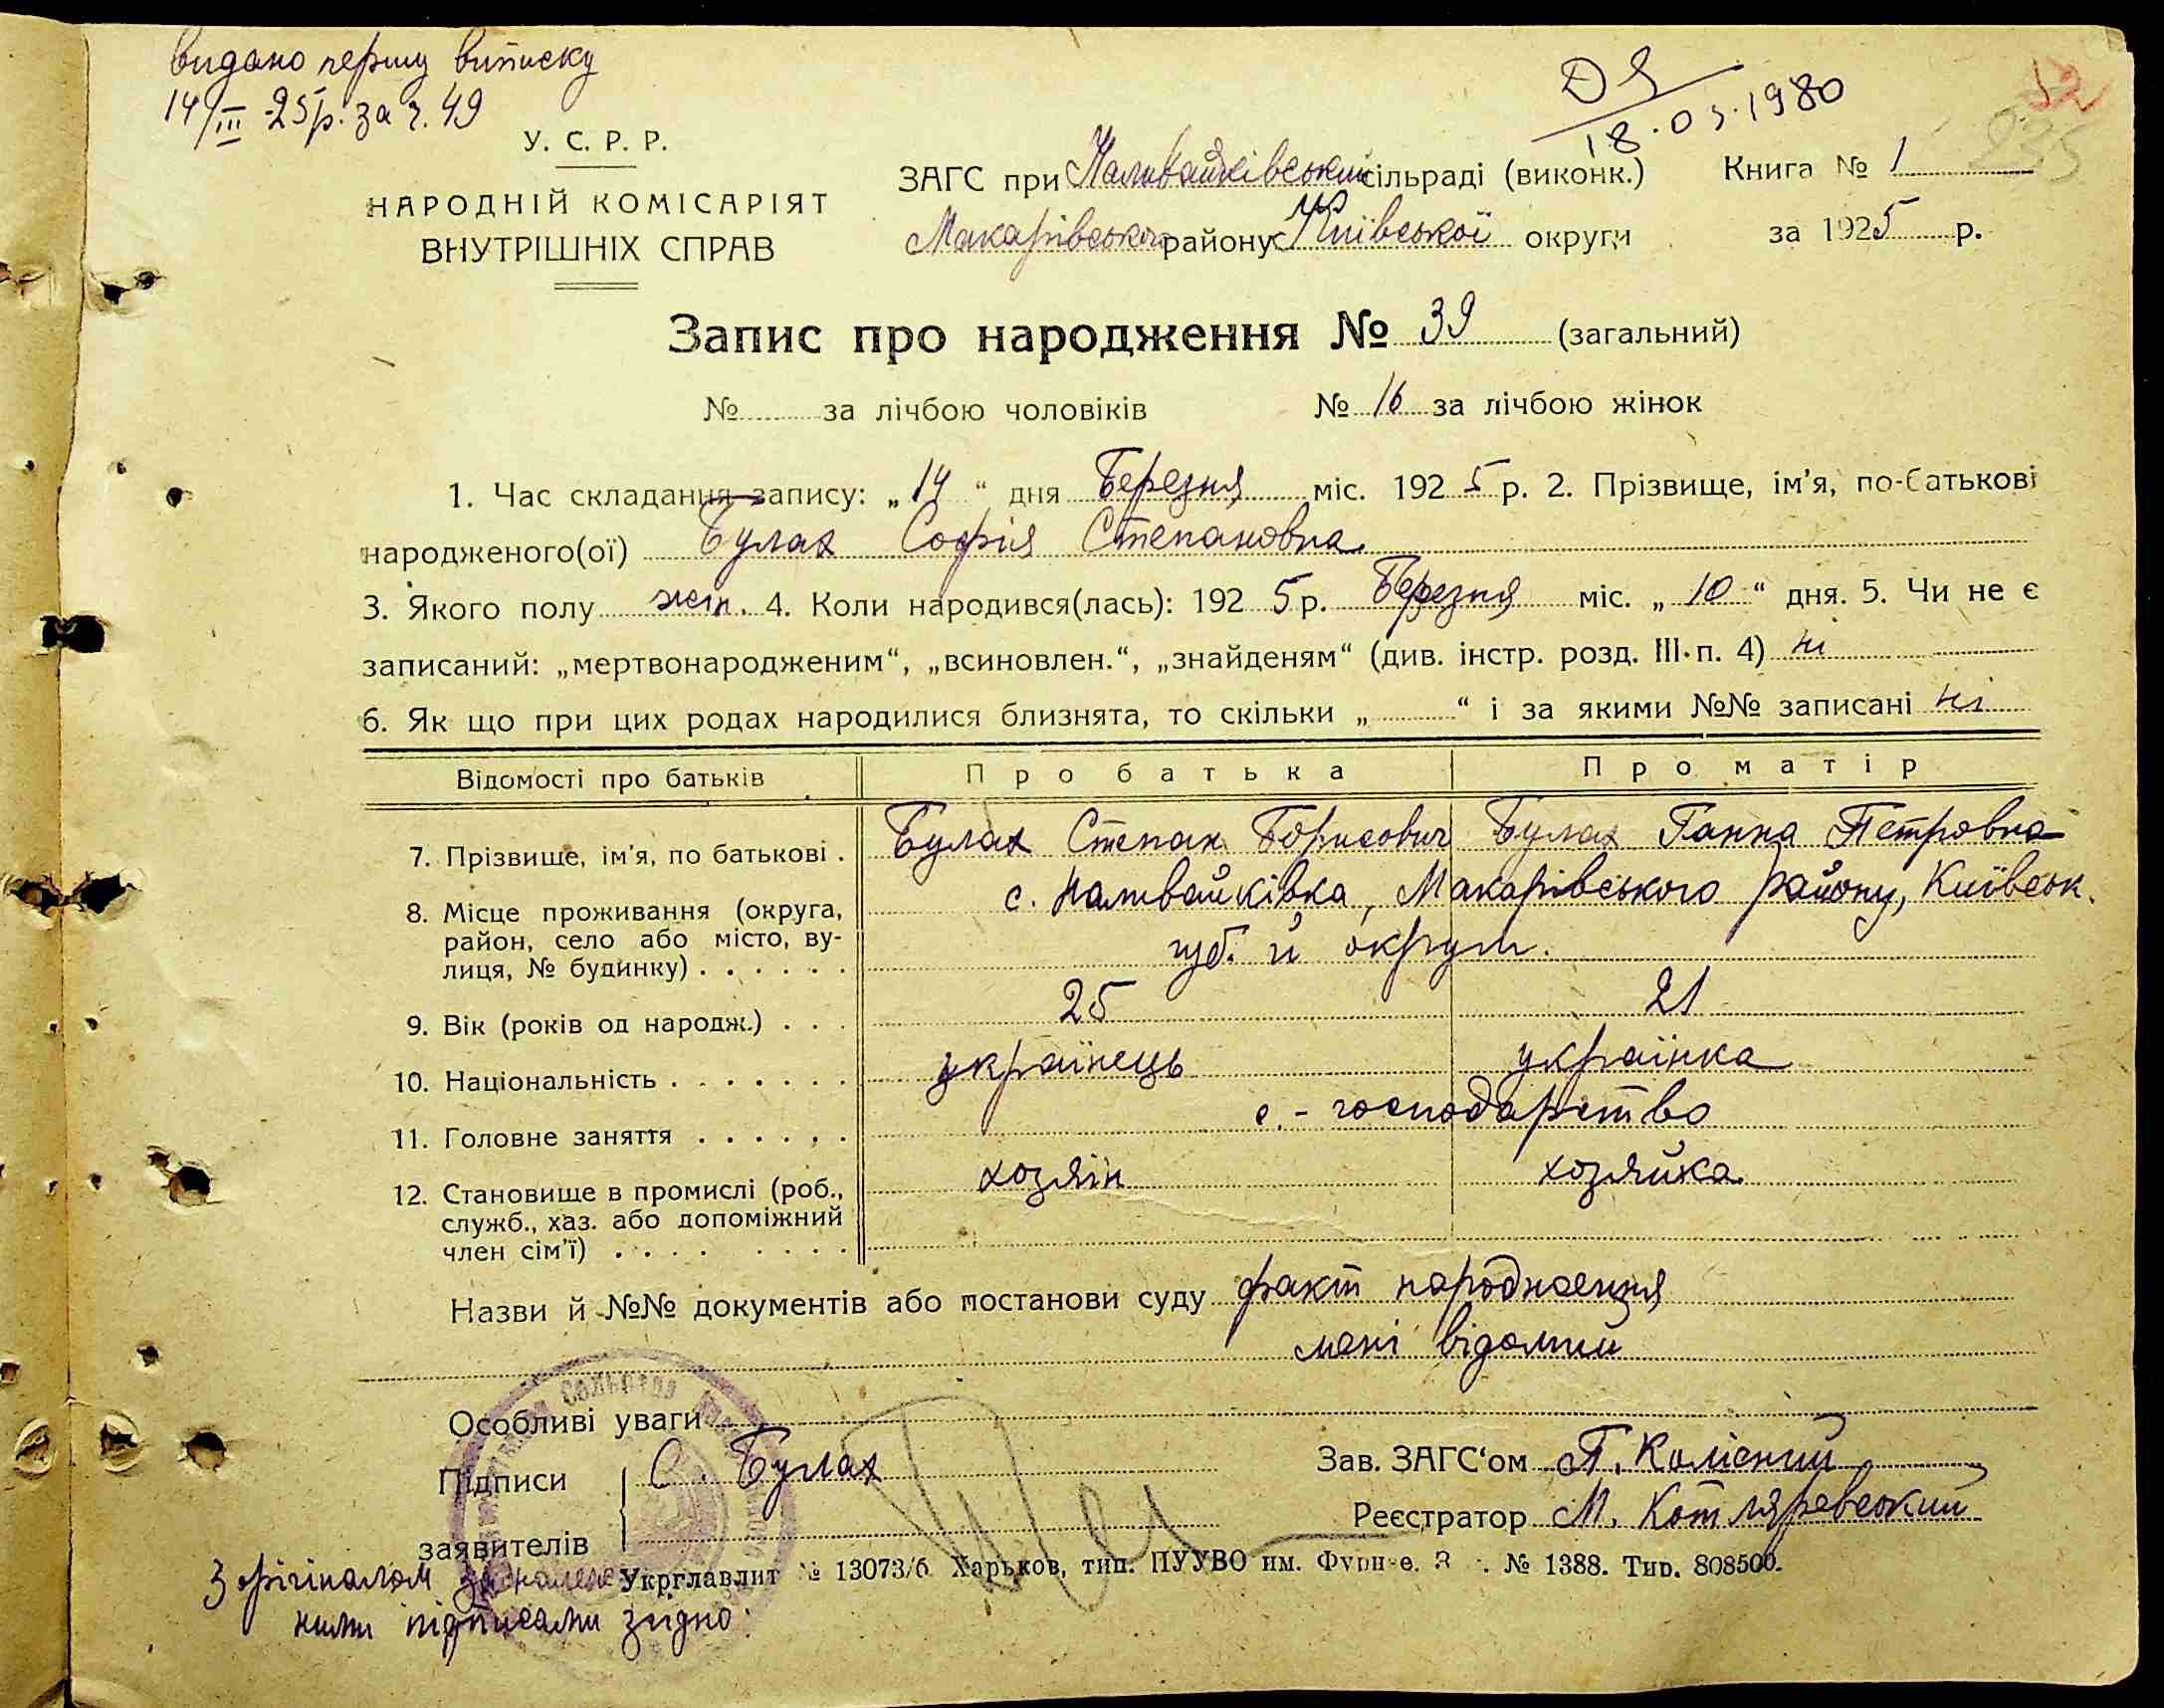 видано першу виписку
14/III -25р. за ч. 49
18.03.1980
У. С. Р. Р.
НАРОДНІЙ КОМІСАРІЯТ
ВНУТРІШНІХ СПРАВ
ЗАГС при Наливайківський сільраді (виконк.) Книга № 1
Макарівського району Київської округи за 1925 р.
Запис про народження № 39 (загальний)
№ за лічбою чоловіків № 16 за лічбою жінок
1. Час складання запису: „14“ дня Березня міс. 1925 р. 2. Прізвище, ім'я, по-батькові
народженого(ої) Булах Софія Степановна
3. Якого полу жін. 4. Коли народився(лась): 1925 р. Березня міс. „10“ дня. 5. Чи не є
записаний: „мертвонародженим“, „всиновлен.“, „знайденям“ (див. інстр. розд. III·п. 4) ні
6. Як що при цих родах народилися близнята, то скільки „ “ і за якими №№ записані ні
Відомості про батьків Про батька Про матір
7. Прізвище, ім'я, по батькові . Булах Степан Борисович Булах Ганна Петровна
8. Місце проживання (округа, с. Наливайківка, Макарівського району, Київськ.
район, село або місто, ву-
лиця, № будинку) . . . . . . губ. й округи.
9. Вік (років од народж.) . . . 25 21
10. Національність . . . . . . . українець українка
11. Головне заняття . . . . . . с.-господарство
12. Становище в промислі (роб., хозяїн хозяйка
служб., хаз. або допоміжний
член сім'ї) . . . . . . . .
Назви й №№ документів або постанови суду факт народження
мені відомий
Особливі уваги
Підписи С. Булах Зав. ЗАГС'ом П. Колісний
Реєстратор М. Котляревський
заявителів
З орігіналом
Укрглавлит № 13073/б Харьков, тип. ПУУВО им. Фрунзе. З . № 1388. Тир. 808500.
ними підписами згідно: